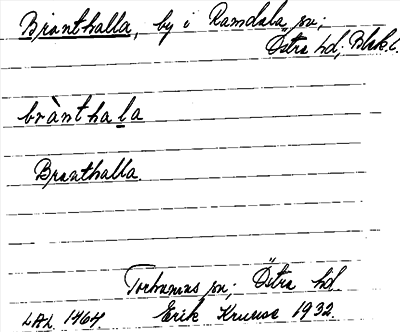 Bränthalla, by i Ramdala sn;
Östra hd; Blek. l.
brànthala
Branthalla.
Torhamns sn; Östra hd.
LAL 1464. Erik Kruuse 1932.